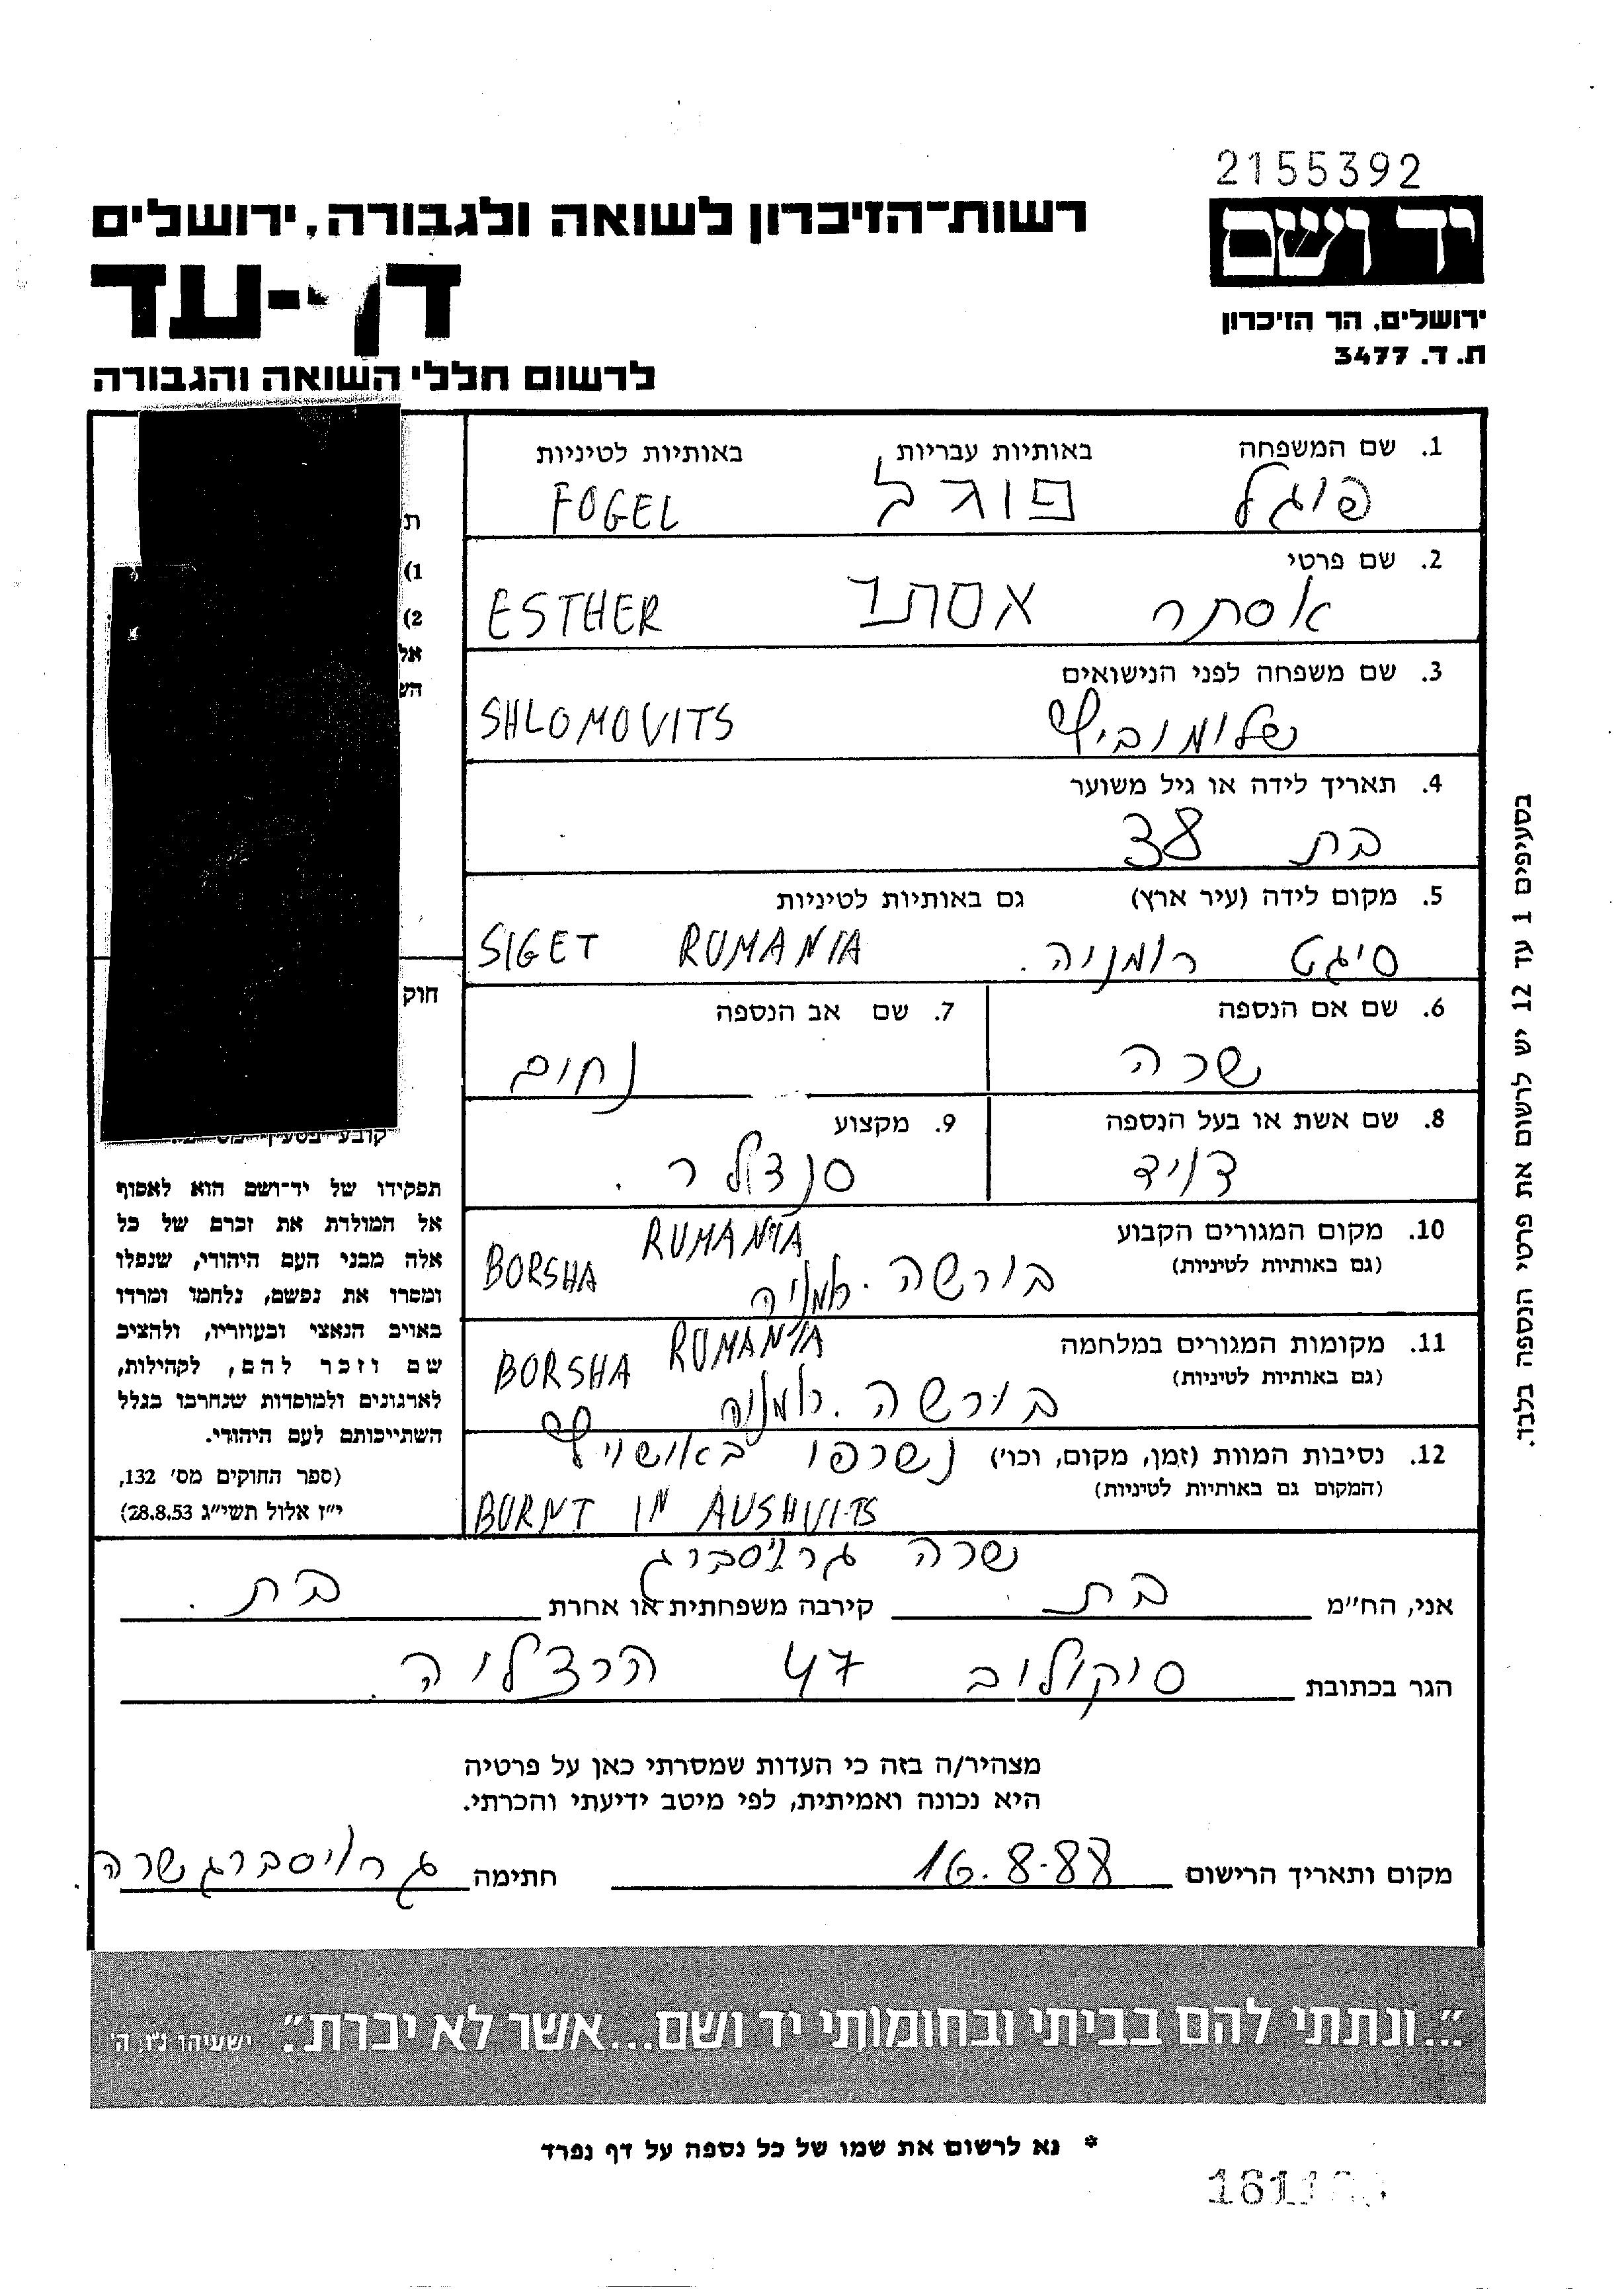 2155392
יד ושם
רשות־הזיכרון לשואה ולגבורה, ירושלים
דף-עד
ירושלים, הר הזיכרון
ת. ד. 3477
לרשום חללי השואה והגבורה
1. שם המשפחה באותיות עבריות באותיות לטיניות
פוגל פוגל FOGEL
2. שם פרטי
אסתר אסתר ESTHER
3. שם משפחה לפני הנישואים
שלומוביץ SHLOMOVITS
4. תאריך לידה או גיל משוער
בת 38
5. מקום לידה (עיר ארץ) גם באותיות לטיניות
סיגט רומניה. SIGET RUMANIA
6. שם אם הנספה 7. שם אב הנספה
שרה נחום
8. שם אשת או בעל הנספה 9. מקצוע
דויד סנדלר.
10. מקום המגורים הקבוע
(גם באותיות לטיניות)
בורשה. רומניה BORSHA RUMANIA
11. מקומות המגורים במלחמה
(גם באותיות לטיניות)
בורשה. רומניה BORSHA RUMANIA
12. נסיבות המוות (זמן, מקום, וכו') נשרפו באושויץ
(המקום גם באותיות לטיניות)
BURNT IN AUSHVITS
ת
1)
2)
אל
הש
חוק
תפקידו של יד־ושם הוא לאסוף
אל המולדת את זכרם של כל
אלה מבני העם היהודי, שנפלו
ומסרו את נפשם, נלחמו ומרדו
באויב הנאצי ובעוזריו, ולהציב
שם וזכר להם, לקהילות,
לארגונים ולמוסדות שנחרבו בגלל
השתייכותם לעם היהודי.
(ספר החוקים מס' 132,
י"ז אלול תשי"ג 28.8.53)
בסעיפים 1 עד 12 יש לרשום את פרטי הנספה בלבד.
שרה גרויסברג
אני, הח"מ בת. קירבה משפחתית או אחרת בת.
הגר בכתובת סוקולוב 47 הרצליה.
מצהיר/ה בזה כי העדות שמסרתי כאן על פרטיה
היא נכונה ואמיתית, לפי מיטב ידיעתי והכרתי.
מקום ותאריך הרישום 16.8.88 חתימה גרויסברג שרה
"...ונתתי להם בביתי ובחומותי יד ושם...אשר לא יכרת". ישעיהו נ"ו, ה'
* נא לרשום את שמו של כל נספה על דף נפרד